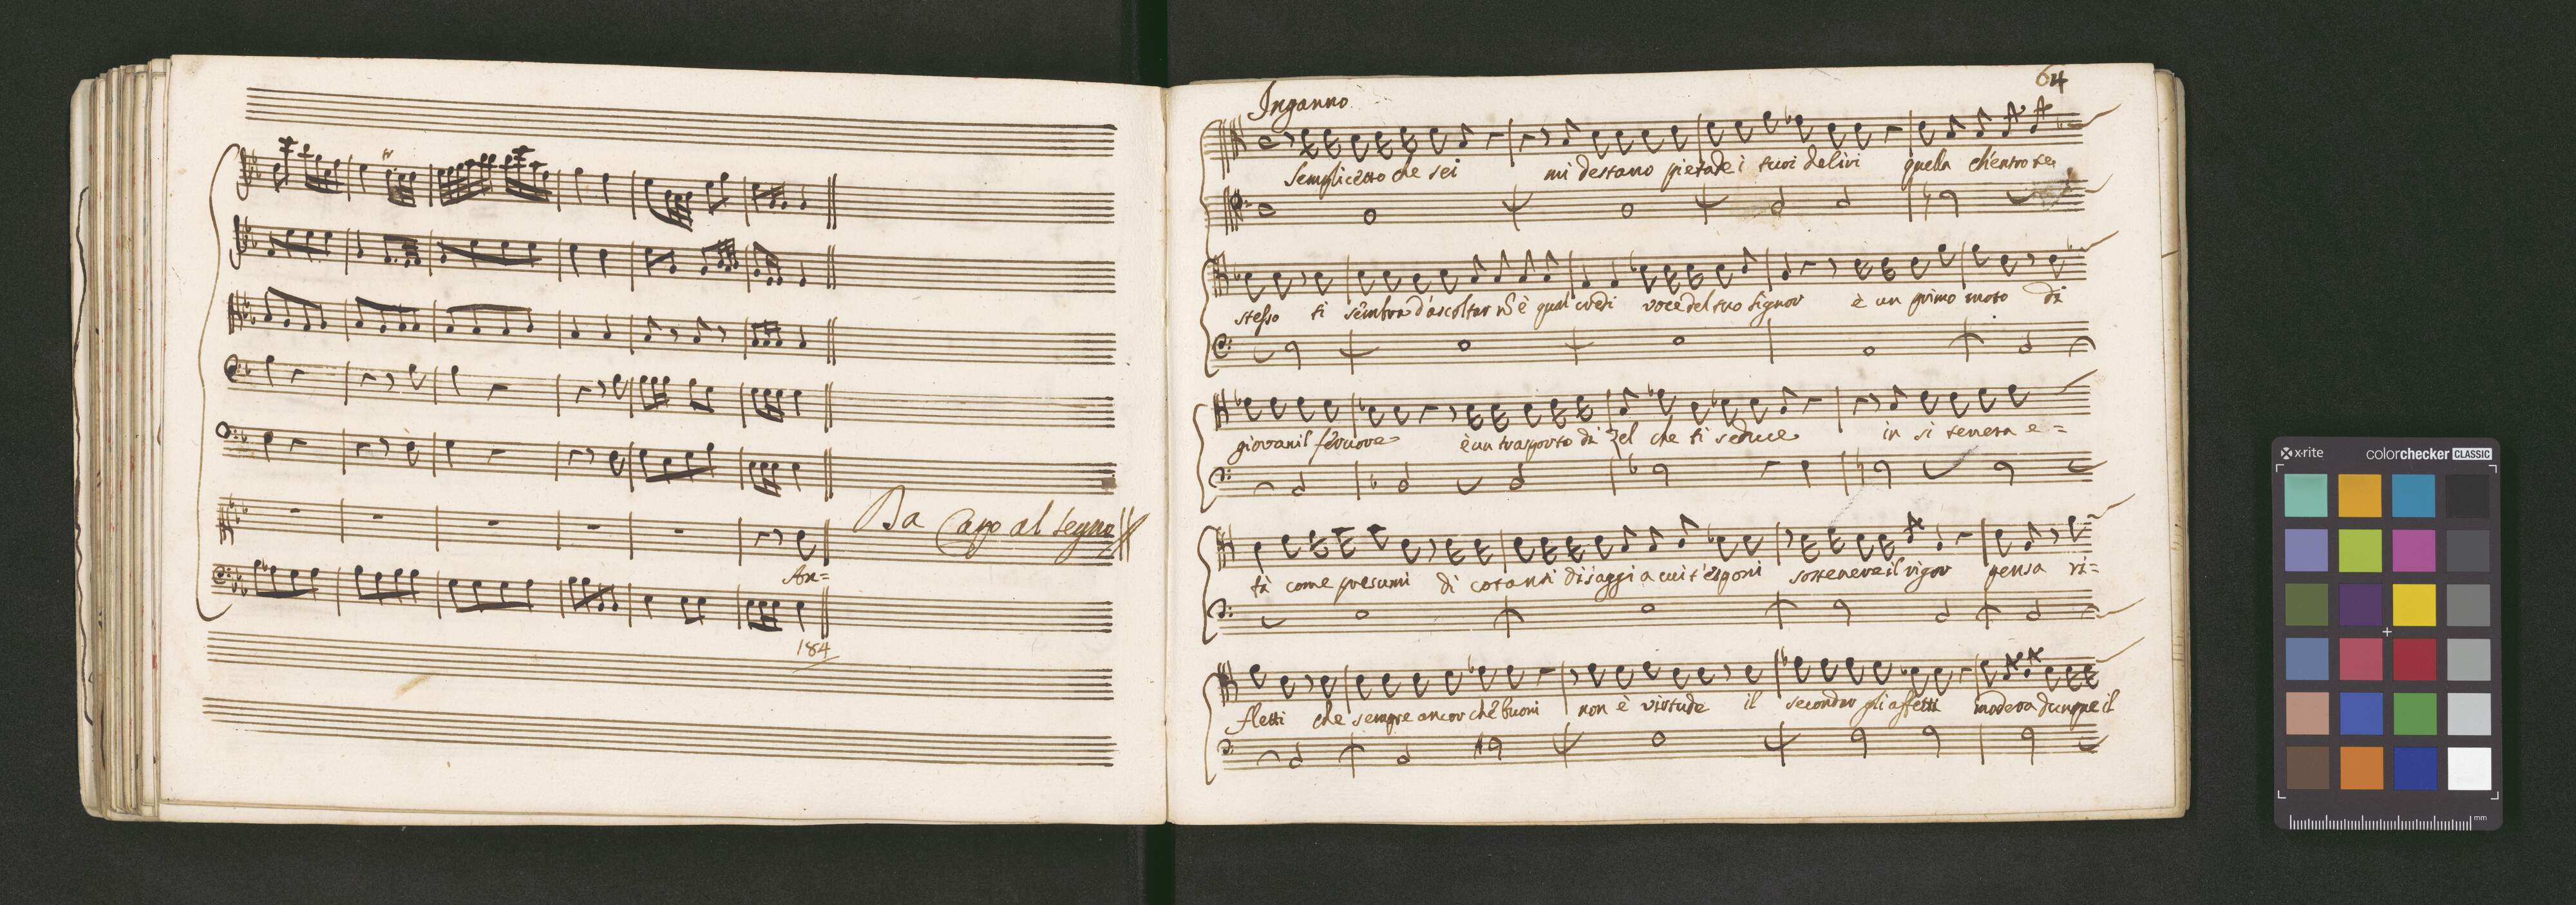 tr
Da Capo al Segno
An=
184
64
Inganno
Semplicetto che sei mi destano pietade i tuoi deliri quella ch'entro te
stesso ti sembra d'ascoltar nō è qual credi voce del tuo Signor è un primo moto di
giovanil fervore è un trasporto di zel che ti seduce in si tenera e=
tà come presumi di cotanti disaggi a cui t'esponi sostenere il rigor pensa ri=
fletti che sempre ancor che buoni non è virtude il secondar gli affetti modera dunque il
x-rite colorchecker CLASSIC
mm